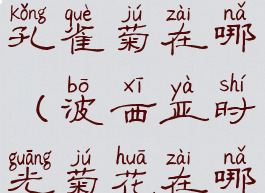 kǒng què jú zài nǎ
孔雀菊在哪
bō xī yà shí
(波西亚时
guāng jú huā zài nǎ
光菊花在哪